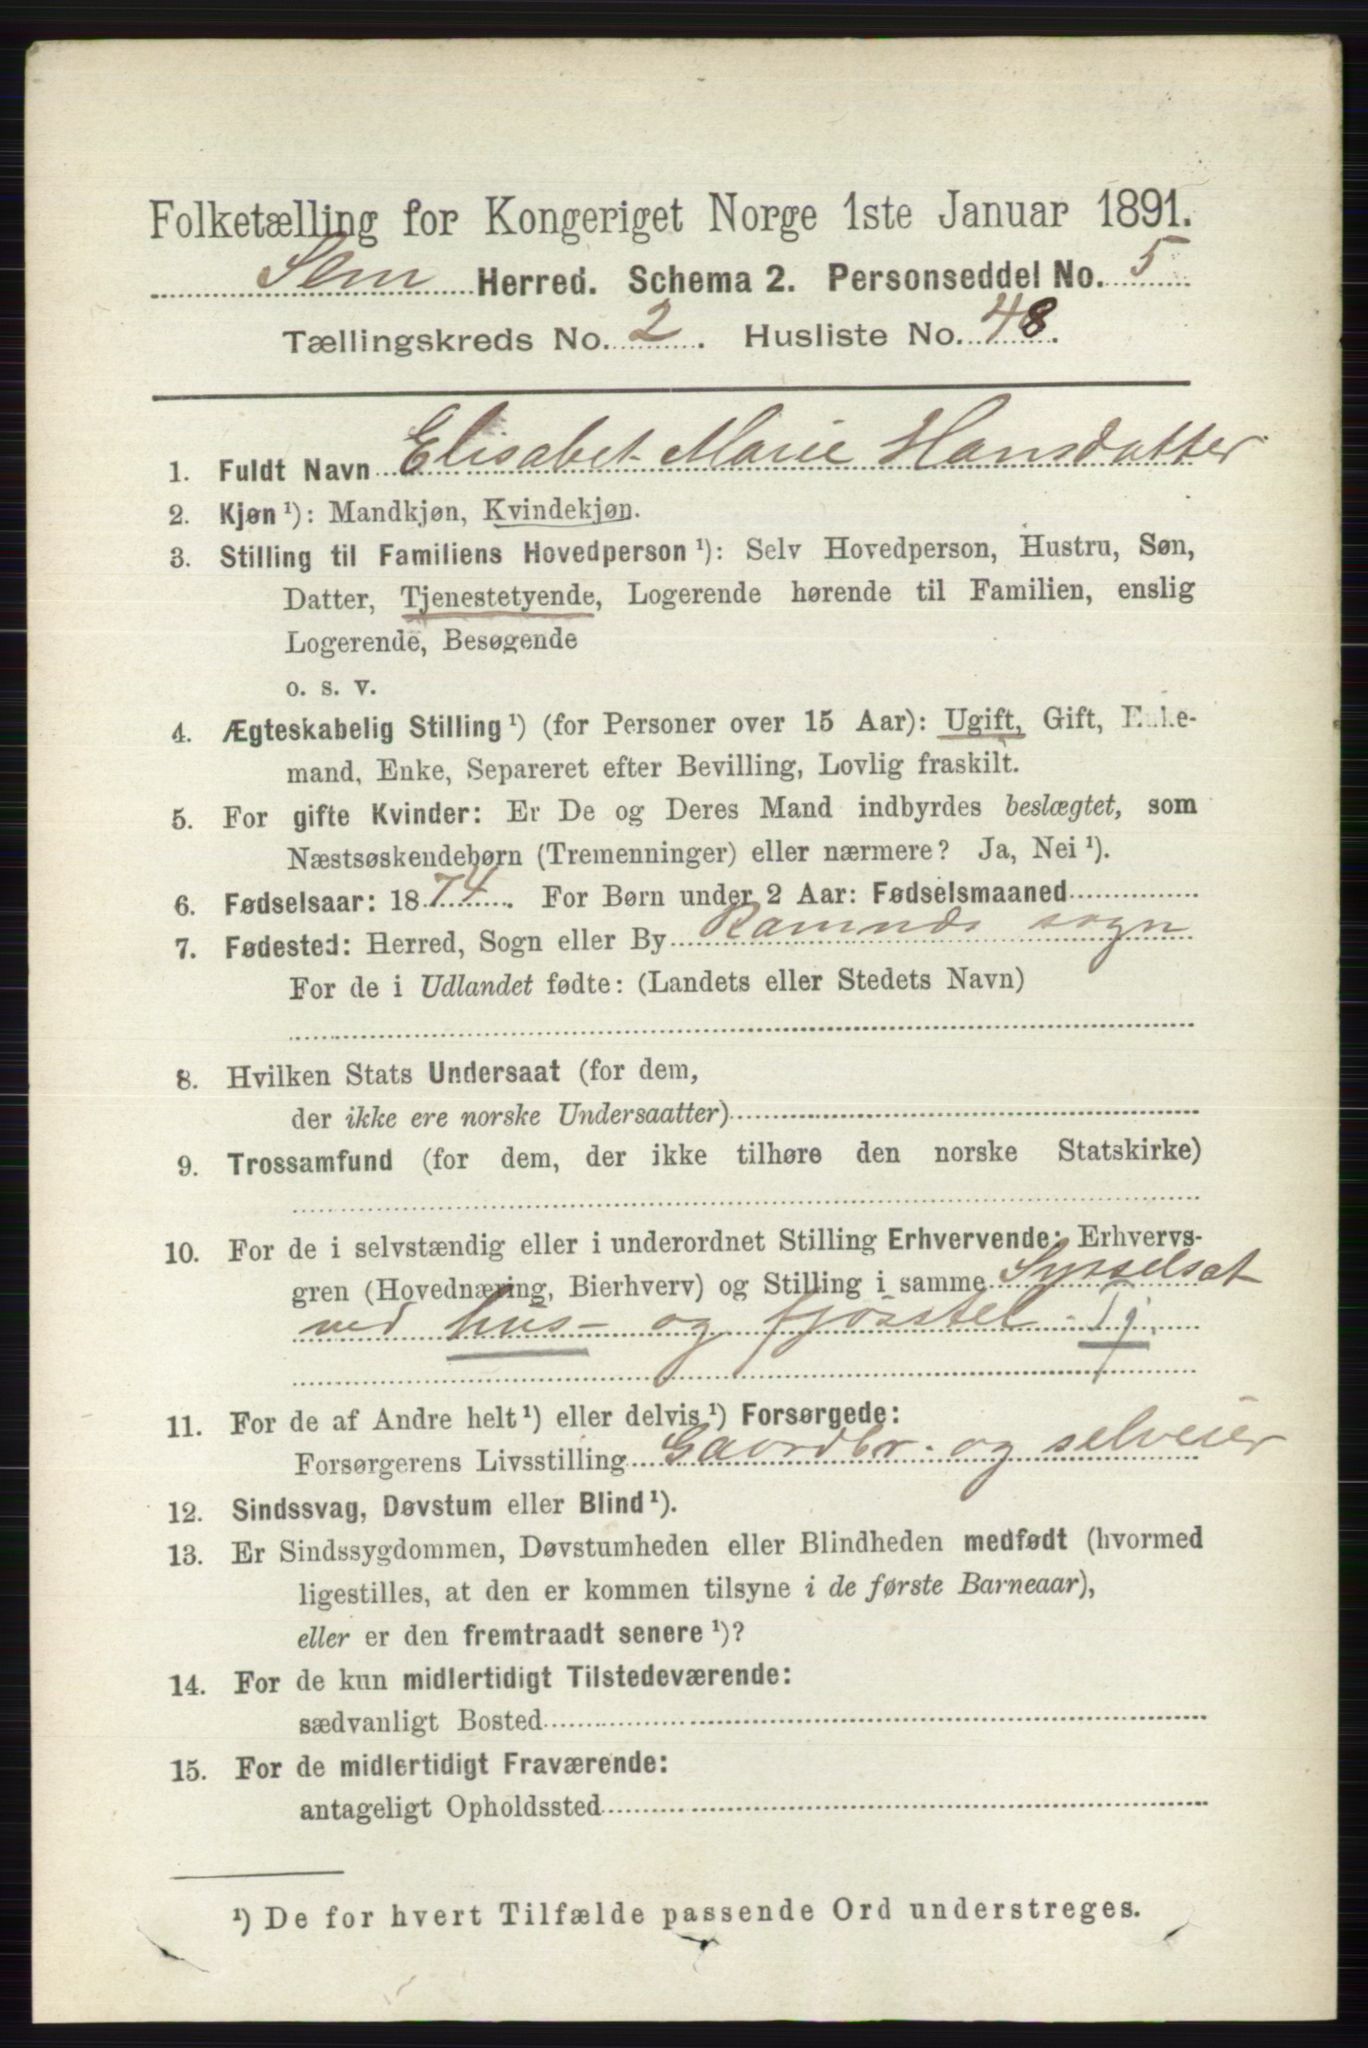 Folketælling for Kongeriget Norge 1ste Januar 1891.
Sem Herred. Schema 2. Personseddel No. 5
Tællingskreds No. 2. Husliste No. 48.
1. Fuldt Navn Elisabet Marie Hansdatter
2. Kjøn ¹): Mandkjøn, Kvindekjøn.
3. Stilling til Familiens Hovedperson ¹): Selv Hovedperson, Hustru, Søn,
Datter, Tjenestetyende, Logerende hørende til Familien, enslig
Logerende, Besøgende
o. s. v.
4. Ægteskabelig Stilling ¹) (for Personer over 15 Aar): Ugift, Gift, Enke-
mand, Enke, Separeret efter Bevilling, Lovlig fraskilt.
5. For gifte Kvinder: Er De og Deres Mand indbyrdes beslægtet, som
Næstsøskendebørn (Tremenninger) eller nærmere? Ja, Nei ¹).
6. Fødselsaar: 1874. For Børn under 2 Aar: Fødselsmaaned
7. Fødested: Herred, Sogn eller By Ramnds sogn
For de i Udlandet fødte: (Landets eller Stedets Navn)
8. Hvilken Stats Undersaat (for dem,
der ikke ere norske Undersaatter)
9. Trossamfund (for dem, der ikke tilhøre den norske Statskirke)
10. For de i selvstændig eller i underordnet Stilling Erhvervende: Erhvervs-
gren (Hovednæring, Bierhverv) og Stilling i samme Sysselsat
ved hus- og fjøsstel. Tj.
11. For de af Andre helt ¹) eller delvis ¹) Forsørgede:
Forsørgerens Livsstilling Gaardbr. og selveier
12. Sindssvag, Døvstum eller Blind ¹).
13. Er Sindssygdommen, Døvstumheden eller Blindheden medfødt (hvormed
ligestilles, at den er kommen tilsyne i de første Barneaar),
eller er den fremtraadt senere ¹)?
14. For de kun midlertidigt Tilstedeværende:
sædvanligt Bosted
15. For de midlertidigt Fraværende:
antageligt Opholdssted
¹) De for hvert Tilfælde passende Ord understreges.